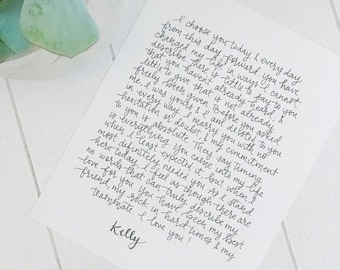 I choose you today & every day
from this day forward. you have
changed my life in ways I cannot
describe. There is little to say to you
that you haven't already heard, &
little to give that is not already
freely given. Before you asked
me, I was yours & am devoted to you
in every way. I marry you with no
hesitation or doubt & my commitment
to you is absolute. They say timing
is everything. you came into my life
when I least expected it, but when I
most definitely needed you. As I stand
here today, I feel as though there are
no words that can truly describe my
love for you. You have been my best
friend, my rock in hard times & my
teammate. I love you!
Kelly